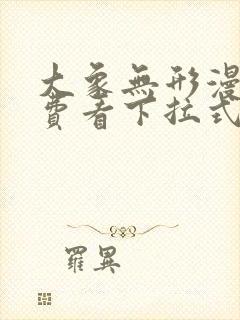 大象無形漫
費看下拉式
羅異